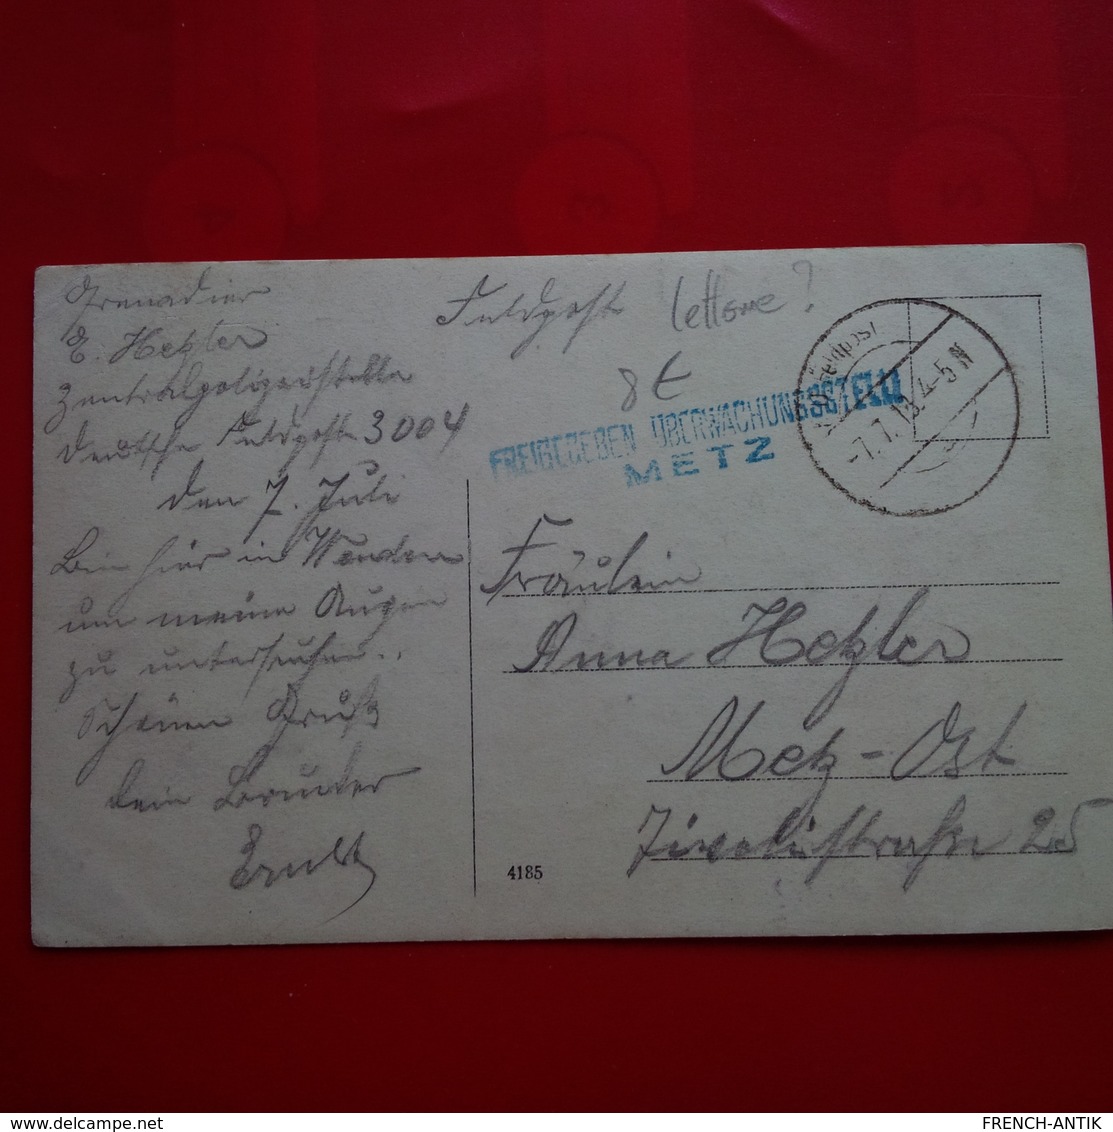 Grenadier
E. Hetzler
Zentralpolizeistelle
Deutsche Feldpost 3004
den 7. Juli
Bin hier in Wenden
um meine Augen
zu untersuchen.
Schönen Gruß
dein Bruder
Ernst
Feldpost lettone?
8€
FREIGEGEBEN ÜBERWACHUNGSSTELLE
METZ
Feldpost
-7.7.18. 4-5N
Fräulein
Anna Hetzler
Metz-Ost
Tivolistraße 25
4185
delcampe.net
FRENCH-ANTIK